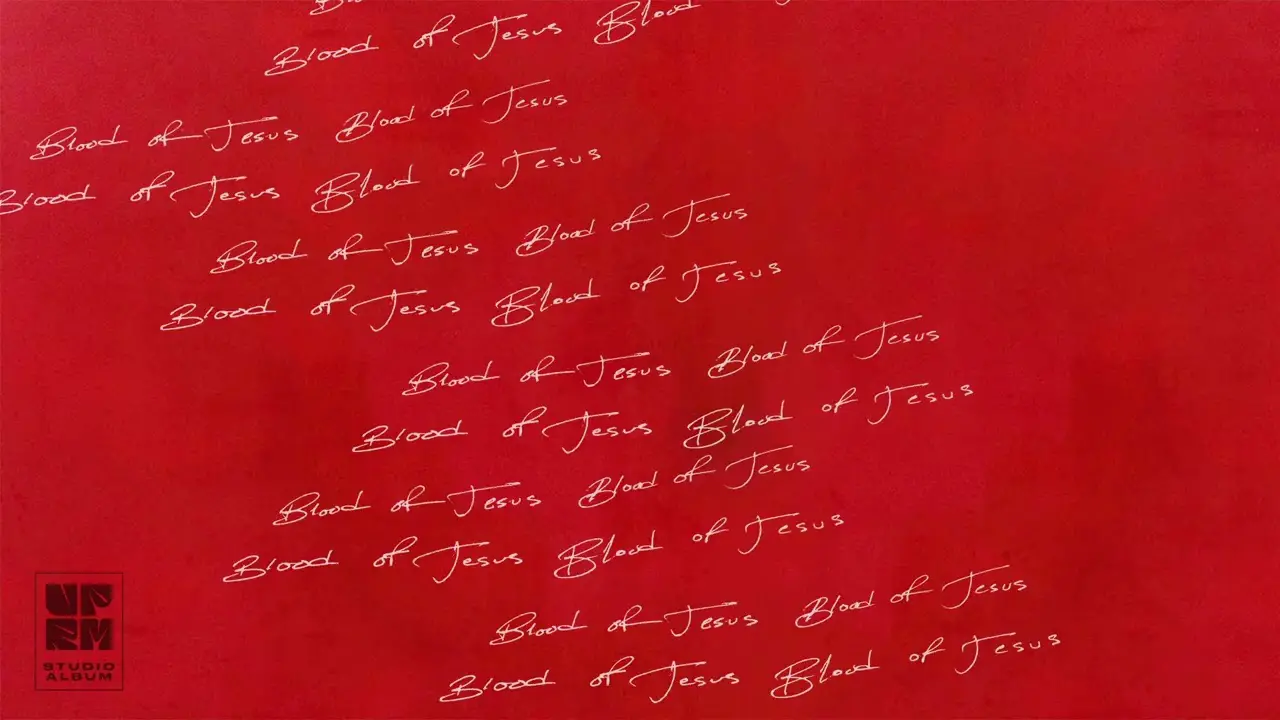 Blood of Jesus Blood
Blood of Jesus Blood of Jesus
Blood of Jesus Blood of Jesus
Blood of Jesus Blood of Jesus
Blood of Jesus Blood of Jesus
Blood of Jesus Blood of Jesus
Blood of Jesus Blood of Jesus
Blood of Jesus Blood of Jesus
Blood of Jesus Blood of Jesus
Blood of Jesus Blood of Jesus
Blood of Jesus Blood of Jesus
UP
RM
STUDIO
ALBUM